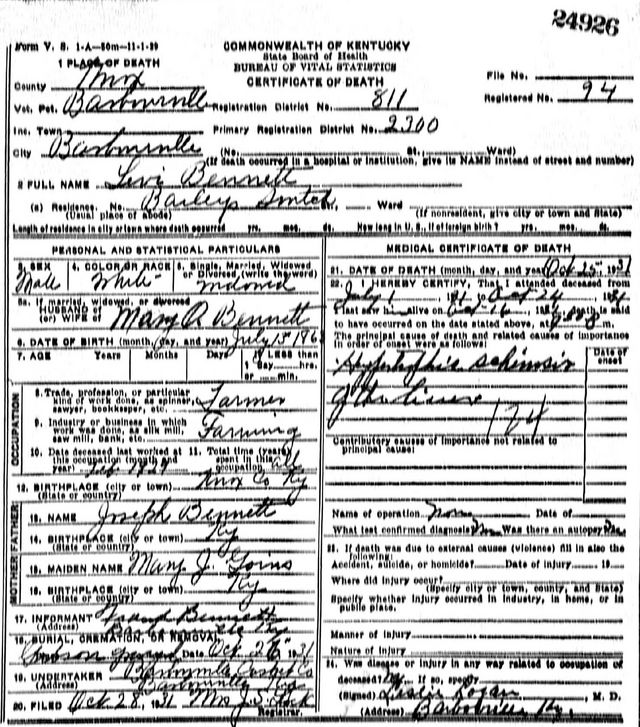 24926
Form V. S. 1-A—50m—11-1-29
COMMONWEALTH OF KENTUCKY
State Board of Health
BUREAU OF VITAL STATISTICS
CERTIFICATE OF DEATH
File No.
Registered No. 94
1 PLACE OF DEATH
County Knox
Vot. Pct. Barbourville Registration District No. 811
Inc. Town Primary Registration District No. 2300
City Barbourville (No. St., Ward)
(If death occurred in a hospital or institution, give its NAME instead of street and number)
2 FULL NAME Levi Bennett
(a) Residence. No. Baileys Switch, Ward
(Usual place of abode) (If nonresident, give city or town and State)
Length of residence in city or town where death occurred yrs. mos. ds. How long in U. S., if of foreign birth? yrs. mos. ds.
PERSONAL AND STATISTICAL PARTICULARS
3. SEX 4. COLOR OR RACE 5. Single, Married, Widowed or Divorced (write the word)
Male White Widowed
5a. If married, widowed, or divorced
HUSBAND of
(or) WIFE of Mary A. Bennett
6. DATE OF BIRTH (month, day, and year) July 15
7. AGE Years Months Days If LESS than
1 day hrs.
or min.
OCCUPATION
8. Trade, profession, or particular
kind of work done, as spinner,
sawyer, bookkeeper, etc. Farmer
9. Industry or business in which
work was done, as silk mill,
saw mill, bank, etc. Farming
10. Date deceased last worked at 11. Total time (years)
this occupation (month and spent in this
year) occupation
12. BIRTHPLACE (city or town) Knox Co Ky
(State or country)
FATHER
13. NAME Joseph Bennett
14. BIRTHPLACE (city or town) Ky
(State or country)
MOTHER
15. MAIDEN NAME Mary J. Goins
16. BIRTHPLACE (city or town) Ky
(State or country)
17. INFORMANT Bennett
(Address) Ky
18. BURIAL, CREMATION, OR REMOVAL
Date Oct. 26 1931
19. UNDERTAKER Barbourville Casket Co
(Address) Barbourville Ky
20. FILED Oct 28, 1931 Mrs J. S.
Registrar.
MEDICAL CERTIFICATE OF DEATH
21. DATE OF DEATH (month, day, and year) Oct 25 1931
22. I HEREBY CERTIFY, That I attended deceased from
July 1 1931 to Oct 24 1931
I last saw h alive on Oct 16, 1931, death is said
to have occurred on the date stated above, at m.
The principal cause of death and related causes of importance
in order of onset were as follows:
Date of onset
Hypertrophic
of the liver
124
Contributory causes of importance not related to
principal cause:
Name of operation None Date of
What test confirmed diagnosis? Was there an autopsy?
23. If death was due to external causes (violence) fill in also the
following:
Accident, suicide, or homicide? Date of injury 19
Where did injury occur?
(Specify city or town, county, and State)
Specify whether injury occurred in industry, in home, or in
public place.
Manner of injury
Nature of injury
24. Was disease or injury in any way related to occupation of
deceased? If so, specify
(Signed) Leslie Logan, M. D.
(Address) Barbourville Ky.